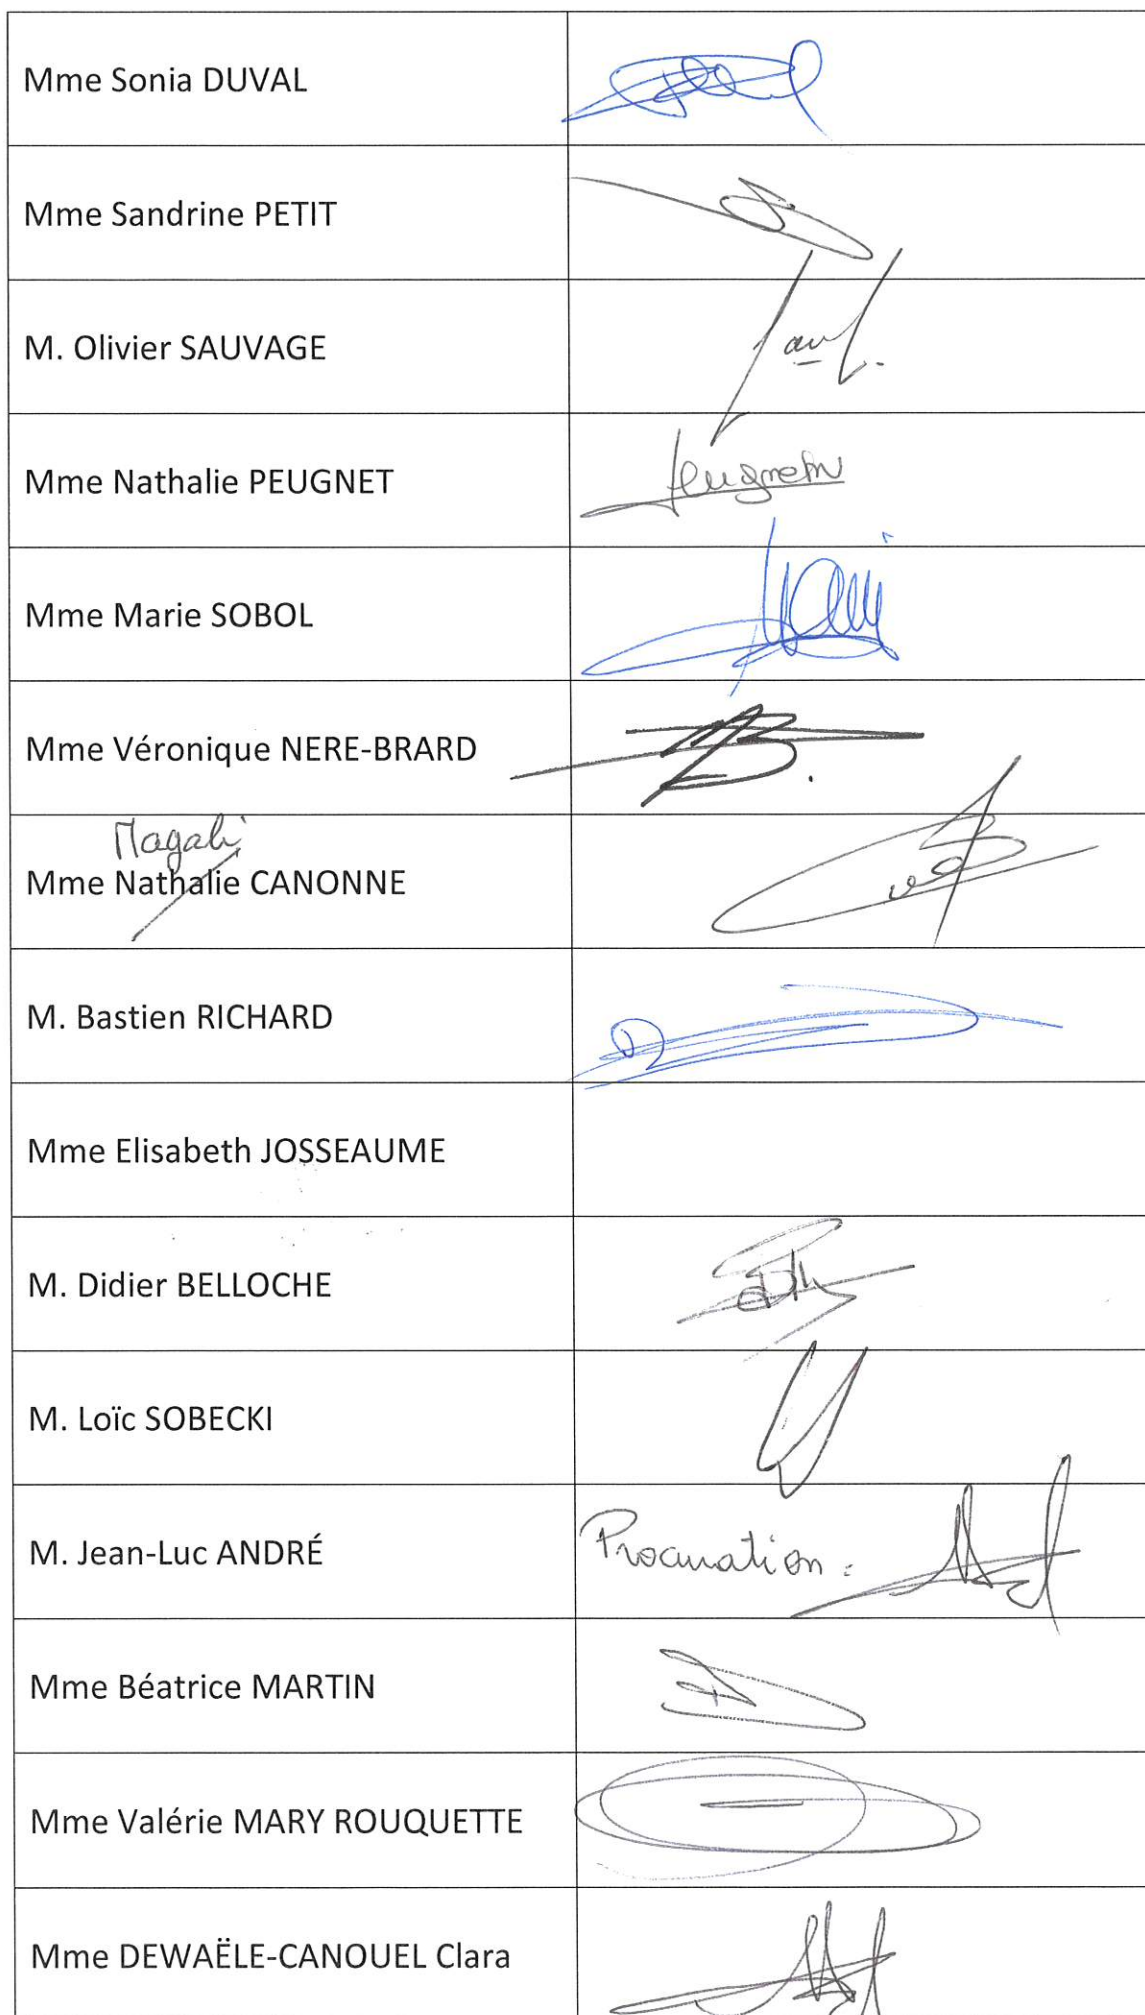 Mme Sonia DUVAL
Mme Sandrine PETIT
M. Olivier SAUVAGE
Mme Nathalie PEUGNET
Peugnet
Mme Marie SOBOL
Mme Véronique NERE-BRARD
Magali
Mme Nathalie CANONNE
M. Bastien RICHARD
Mme Elisabeth JOSSEAUME
M. Didier BELLOCHE
M. Loïc SOBECKI
M. Jean-Luc ANDRÉ
Procuration :
Mme Béatrice MARTIN
Mme Valérie MARY ROUQUETTE
Mme DEWAËLE-CANOUEL Clara